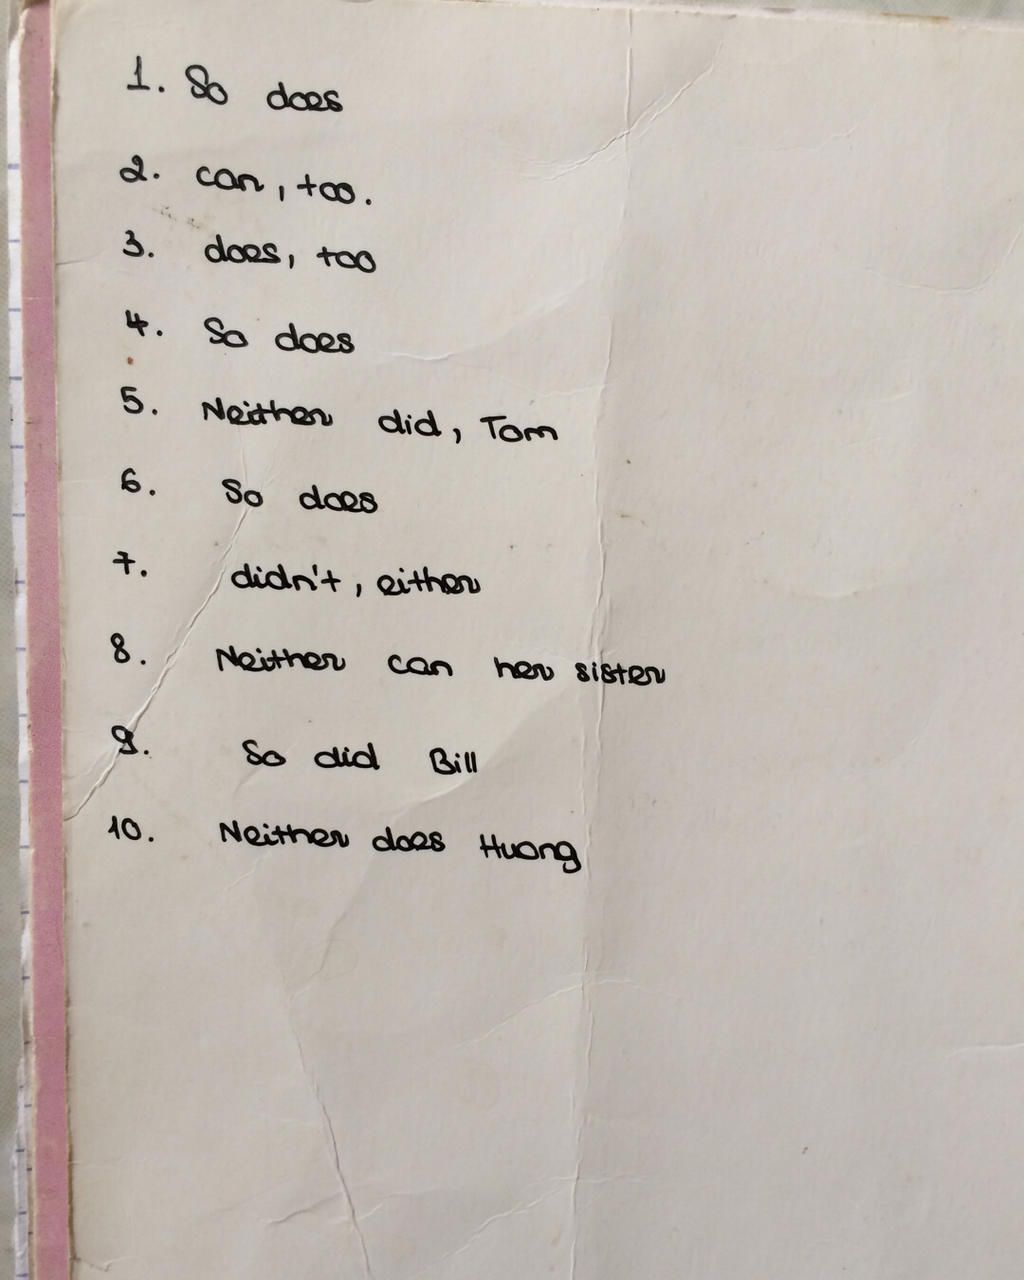 1. So does
2. can, too.
3. does, too
4. So does
5. Neither did, Tom
6. So does
7. didn't, either
8. Neither can her sister
9. So did Bill
10. Neither does Huong